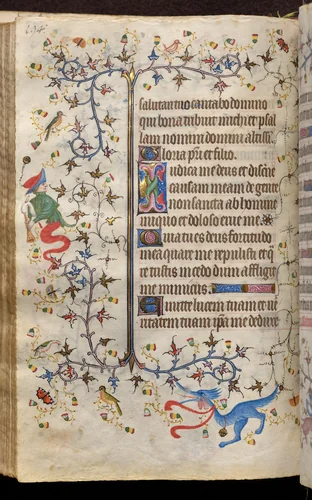 salutari tuo cantabo domino
qui bona tribuit michi et psal
lam nomini domini altissi.
Gloria pr̃i et filio.
Iudica me deus et discñe
causam meam de gente
non sancta ab homine
iniquo et doloso erue me
Quia tu es deus fortitudo
mea quare me repulisti et q̃
re tristis incedo dum affligit
me inimicus.
Emitte lucem tuam et ue
ritatem tuam ip̃a me deduxe